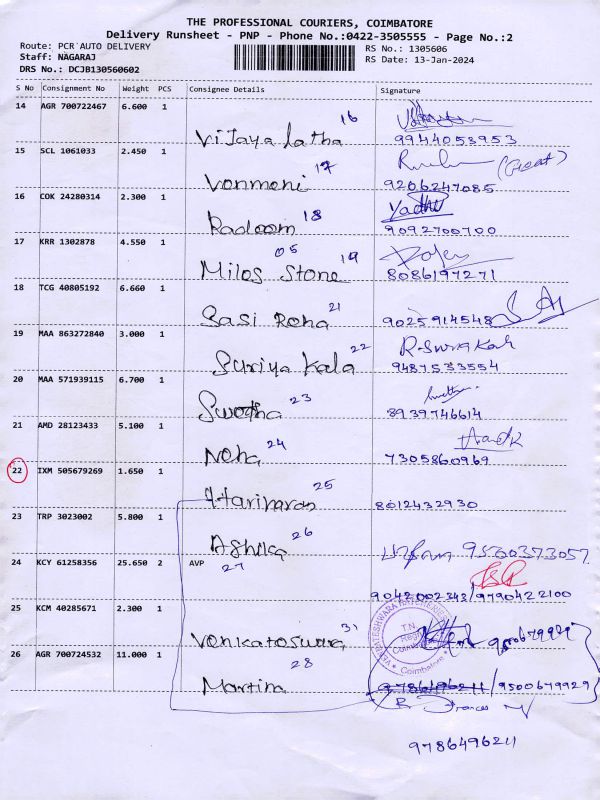 THE PROFESSIONAL COURIERS, COIMBATORE
Delivery Runsheet - PNP - Phone No.:0422-3505555 - Page No.:2
Route: PCR AUTO DELIVERY RS No.: 1305606
Staff: NAGARAJ RS Date: 13-Jan-2024
DRS No.: DCJB130560602
S No Consignment No Weight PCS Consignee Details Signature
14 AGR 700722467 6.600 1
Vijaya Latha 16 9944053953
15 SCL 1061033 2.450 1
Vonmoni 17 (Great)
9206247085
16 COK 24280314 2.300 1
18 Yadhu
9092700700
17 KRR 1302878 4.550 1
Milos Stone 05 19 8086197271
18 TCG 40805192 6.660 1
Sasi Roha 21 9025914548
19 MAA 863272840 3.000 1
Suriya Kala 22 9487533554
20 MAA 571939115 6.700 1
Swetha 23 8939746614
21 AMD 28123433 5.100 1
Noha 24 7305860969
22 IXM 505679269 1.650 1
Hariharan 25 8012432930
23 TRP 3023002 5.800 1
Ashika 26 9500373057
24 KCY 61258356 25.650 2 AVP
27
9042002343/9790422100
25 KCM 40285671 2.300 1
Venkatoswara 31 9500679929
26 AGR 700724532 11.000 1
Martin 28 9786196211 /9500679929
9786496211
T.N.
Coimbatore